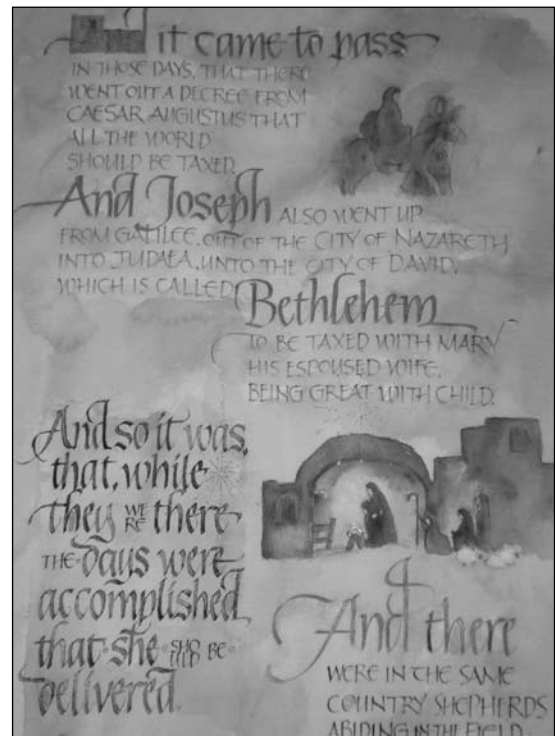 And it came to pass
IN THOSE DAYS, THAT THERE
WENT OUT A DECREE FROM
CAESAR AUGUSTUS THAT
ALL THE WORLD
SHOULD BE TAXED.
And Joseph ALSO WENT UP
FROM GALILEE, OUT OF THE CITY OF NAZARETH
INTO JUDAEA, UNTO THE CITY OF DAVID,
WHICH IS CALLED Bethlehem
TO BE TAXED WITH MARY
HIS ESPOUSED WIFE,
BEING GREAT WITH CHILD.
And so it was,
that, while
they WERE there
THE days were
accomplished
that she SHOULD BE
delivered.
And there
WERE IN THE SAME
COUNTRY SHEPHERDS
ABIDING IN THE FIELD